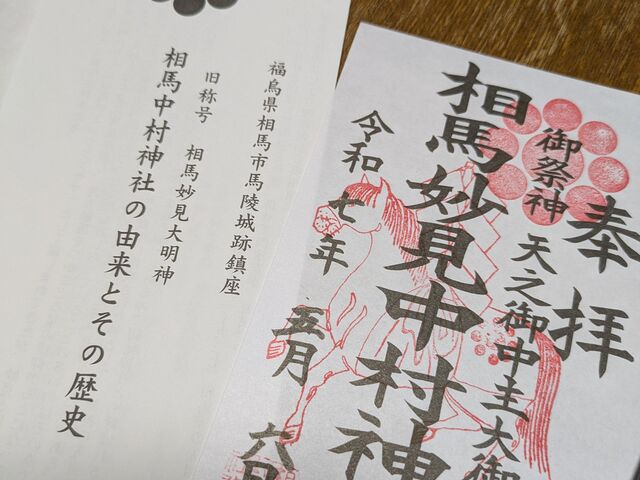 福島県相馬市馬陵城跡鎮座
旧称号 相馬妙見大明神
相馬中村神社の由来とその歴史
奉拝
御祭神 天之御中主大御
相馬妙見中村神
令和七年 五月 六日